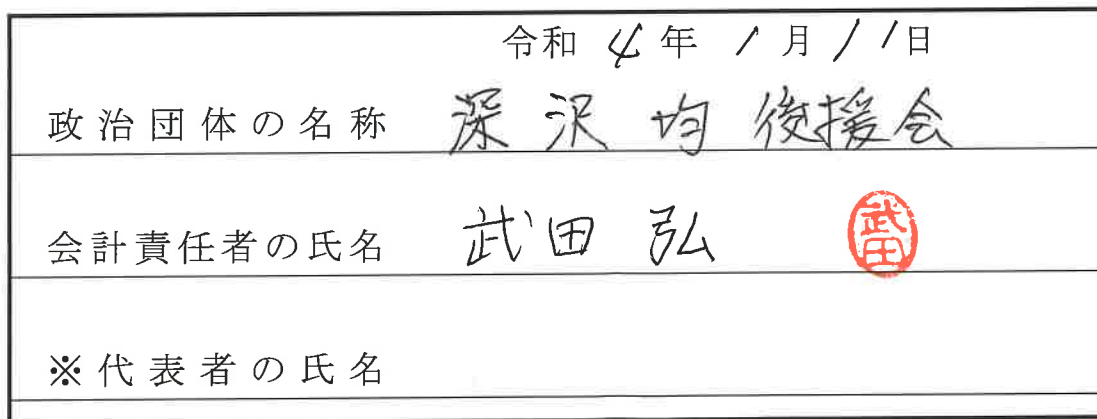 令和 4 年 1 月 11 日
政治団体の名称 深沢 均 後援会
会計責任者の氏名 武田 弘 武田
※代表者の氏名